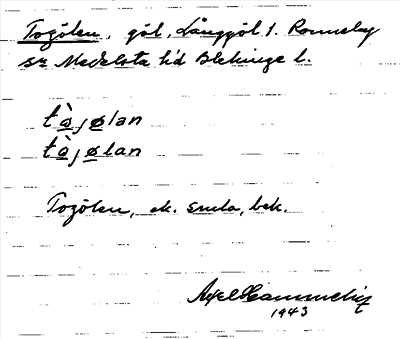 Togölen, göl, Långgöl 1. Ronneby
sn Medelsta hd Blekinge l.
tàjølan
tàjølan
Togölen, ek. smula, bek.
Axel
1943